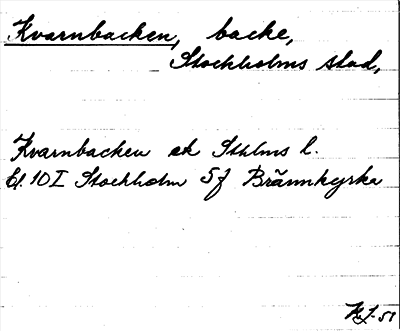 Kvarnbacken, backe,
Stockholms stad,
Kvarnbacken ek Sthlms l.
Bl. 10 I Stockholm 5 f Brännkyrka
51